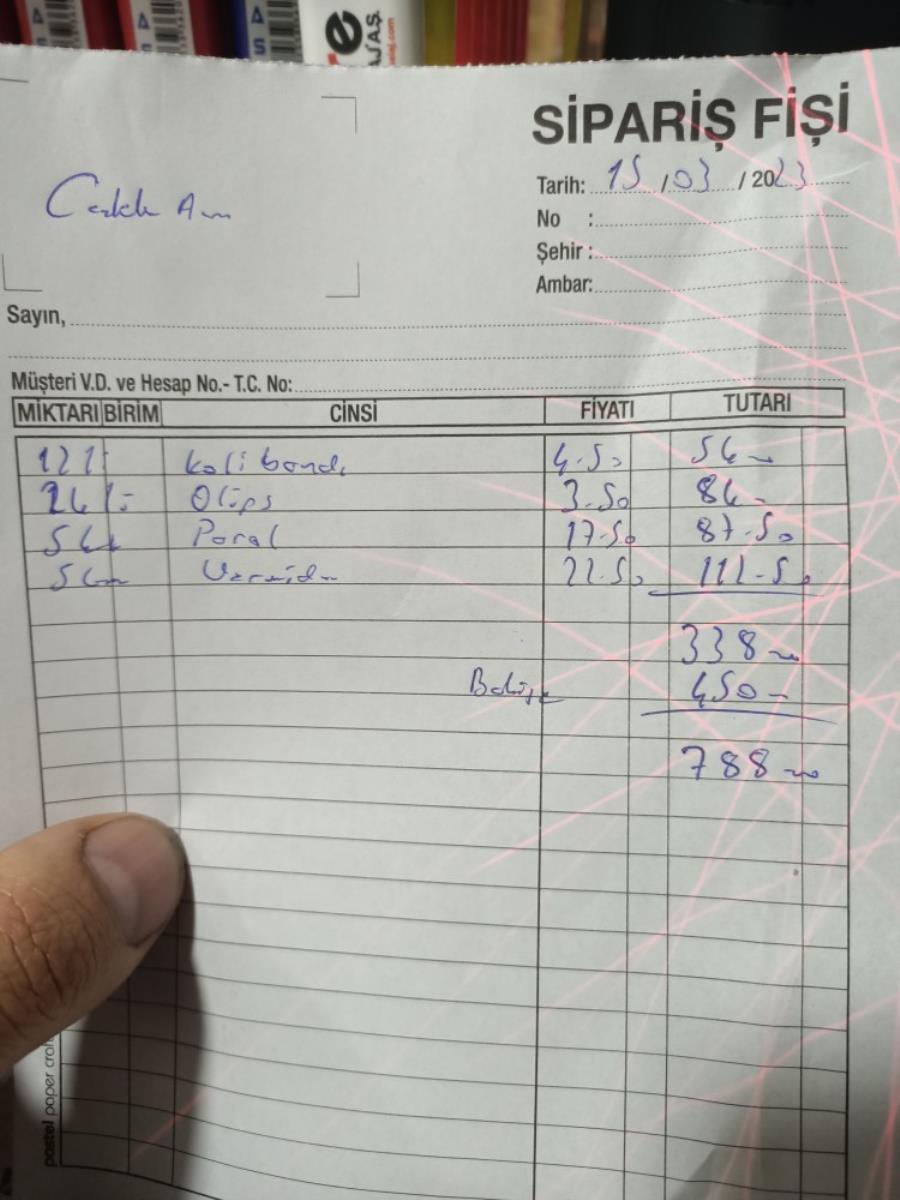 SİPARİŞ FİŞİ
Tarih: 15 / 03 / 2023
No :
Şehir :
Ambar:
Sayın,
Müşteri V.D. ve Hesap No.- T.C. No:
MİKTARI BİRİM CİNSİ FİYATI TUTARI
12 koli bandı 4.50 54
24 Olips 3.50 84
5 Poral 17.50 87.50
5 22.50 112.50
338
Bakiye 450
788
pastel paper